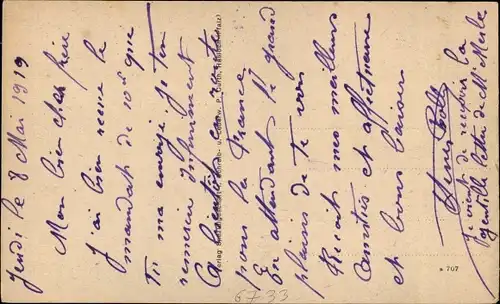 Jeudi le 8 Mai 1919
Mon bien cher frère
J'ai bien reçu le
mandat de 10 que
Tu m'a envoyé. Je ten
remercie infiniment
A bientôt
pour la France
En attendant le grand
plaisir de te voir
Reçoit mes meilleurs
amitiés et affections
et bons baisers
Je viens de recevoir la
gentille lettre de Mr Merle
6733
* 707